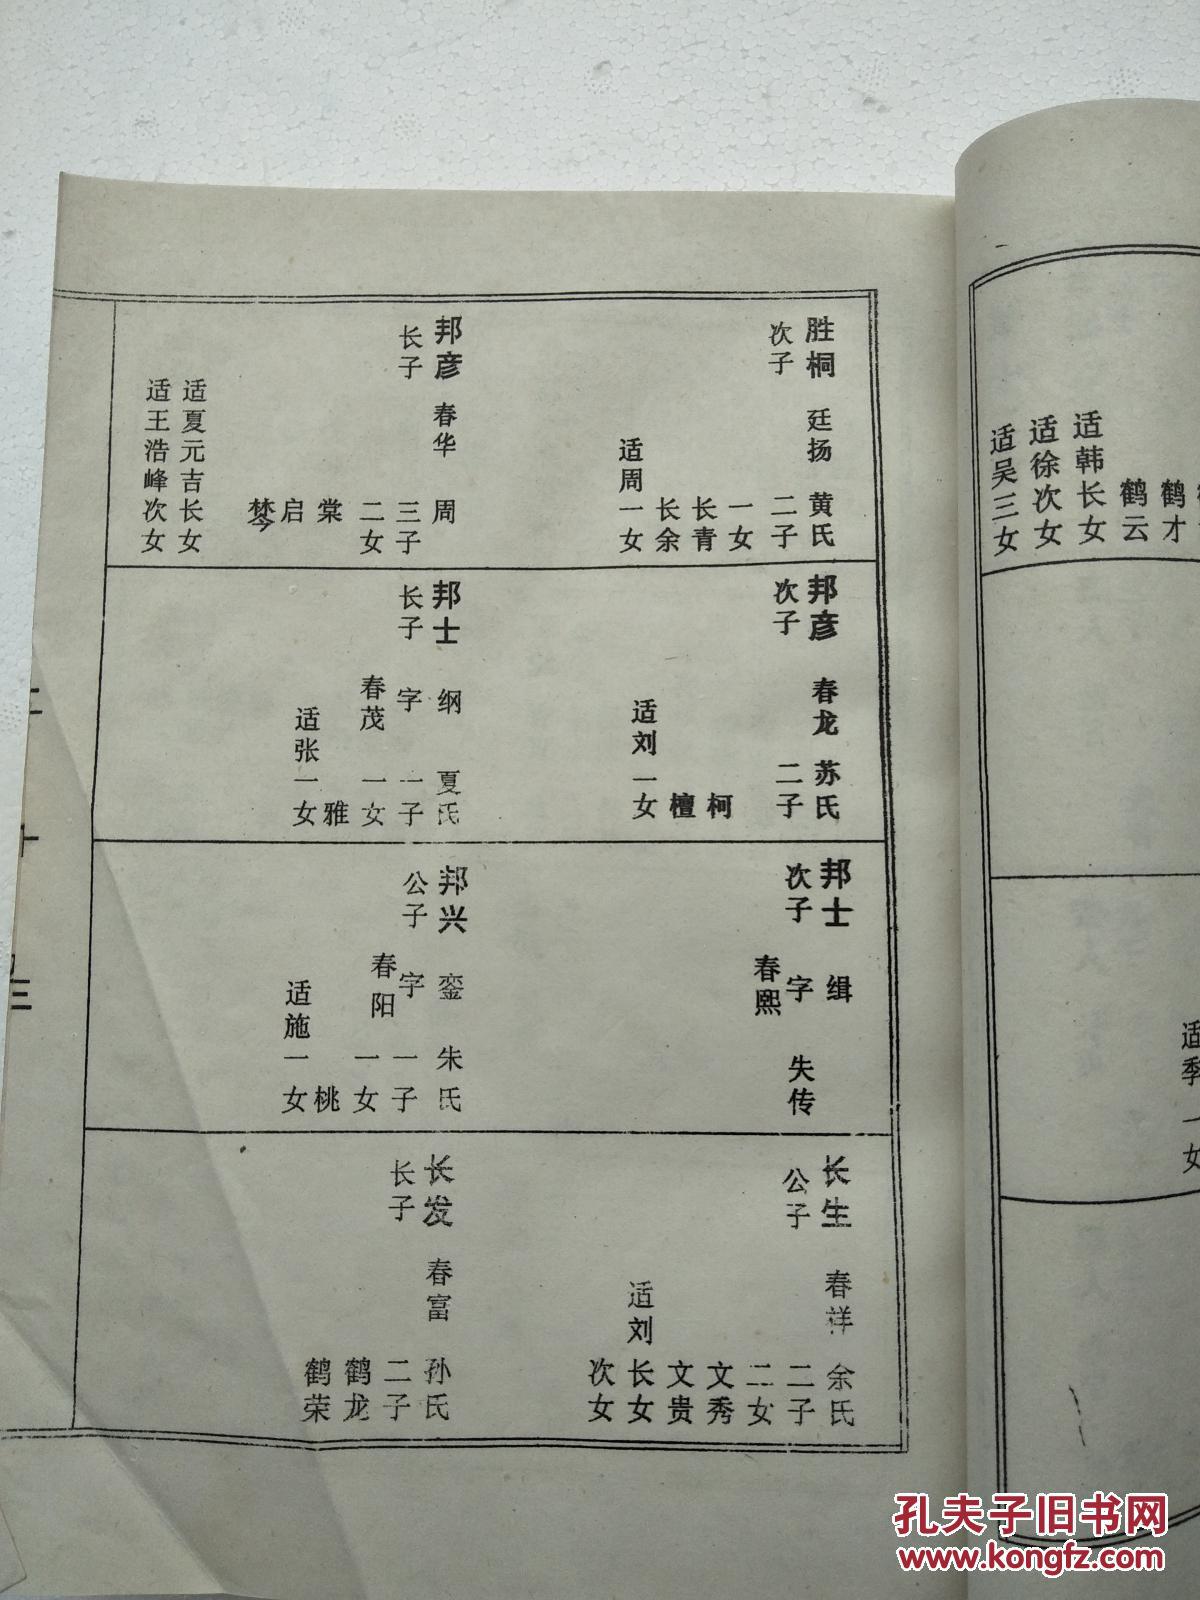 适韩长女
适徐次女
适吴三女
鹤才
鹤云
适季一女
胜桐 廷扬 黄氏
次子 二子
一女
长青
长余
适周一女
邦彦 春华 周
长子 三子
二女
棠
启
适夏元吉长女
适王浩峰次女
邦彦 春龙 苏氏
次子 二子
柯
檀
适刘一女
邦士 纲 夏氏
长子 字 一子
春茂 一女
雅
适张一女
邦士 缉
次子 字 失传
春熙
邦兴 銮 朱氏
公子 字 一子
春阳 一女
桃
适施一女
长生 春祥 余氏
公子 二子
二女
文秀
文贵
适刘长女
次女
长发 春富 孙氏
长子 二子
鹤龙
鹤荣
孔夫子旧书网
www.kongfz.com